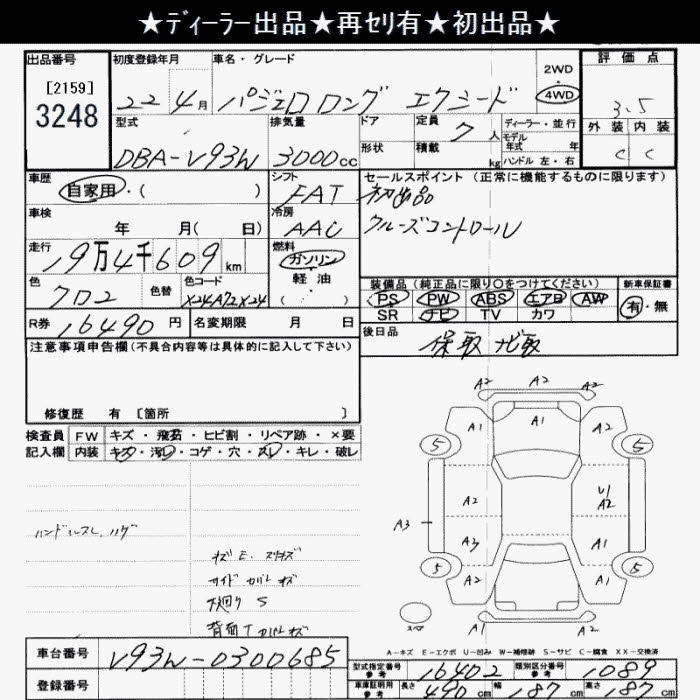 ★ディーラー出品★再セリ有★初出品★
出品番号 初度登録年月 車名・グレード 2WD・4WD 評価点
[2159]
3248 22年4月 パジェロロング エクシード 3.5
型式 排気量 ドア 定員 7人 ディーラー・並行 外装 内装
形状 積載 kg モデル年式 年 ハンドル 左・右
DBA-V93W 3000cc C C
車歴 自家用・( ) シフト FAT セールスポイント (正常に機能するものに限ります)
初出品
車検 年 月( 日) 冷房 AAC クルーズコントロール
走行 19万4千609km 燃料 ガソリン・軽油・( )
色 クロ2 色替 色コード X24A72X24 装備品 (純正品に限り○をつけてください) 新車保証書
PS PW ABS エアB AW 有・無
SR ナビ TV カワ
R券 16490円 名変期限 月 日 後日品
保取 ナビ取
注意事項申告欄(不具合内容等は具体的に記入して下さい)
修復歴 有 [箇所 ]
検査員 FW キズ・飛石・ヒビ割・リペア跡・×要
記入欄 内装 キズ・汚レ・コゲ・穴・スレ・キレ・破レ
A2 A2 A2
A1 A1 A2
5 5
A2 U1
A2
A3
A3 A1
5 A2 A1 5
A1
A1 A2
ハンドルスレ、ハゲ
キズE.
サイドカバーキズ
下廻りS
背面Tカバーキズ
スペア
A-キズ E-エクボ U-凹み W-補修跡 S-サビ C-腐食 XX-交換済
車台番号 V93W-0300685 型式指定番号 参考 16402 類別区分番号 参考 1089
登録番号 車庫証明用 参考 長さ 490cm 幅 187cm 高さ 187cm